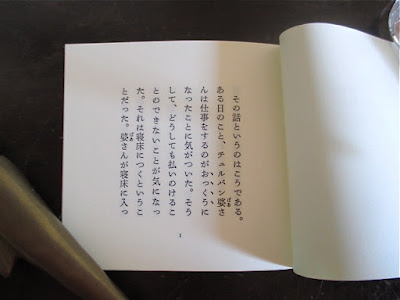 その話というのはこうである。
ある日のこと、チュルパン婆さ
んは仕事をするのがおっくうに
なったことに気がついた。そう
して、どうしても払いのけるこ
とのできないことが気になっ
た。それは寝床につくというこ
とだった。婆さんが寝床に入っ
1